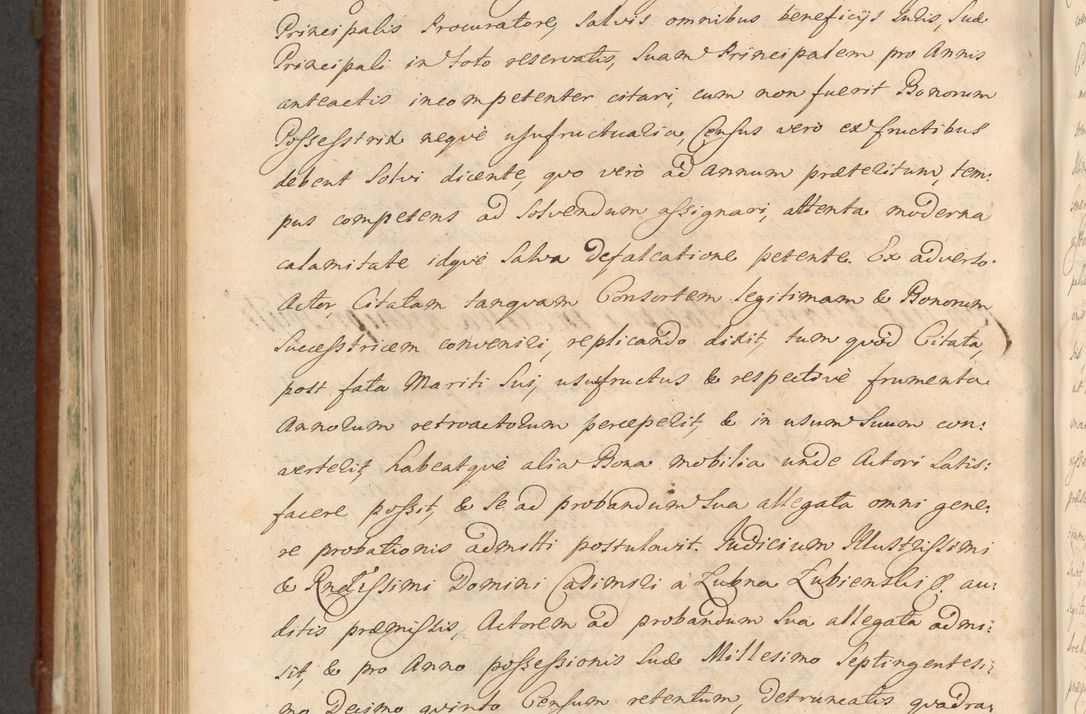 Principalis Procuratore, salvis omnibus beneficijs Iuris, Suæ
Principali in toto reservatis, Suam Principalem pro Annis
anteactis incompetenter citari, cum non fuerit Bonorum
Possesstrix neque usufructualia, Census verò ex fructibus
debent Solvi dicente, quo verò ad Annum præteritum, tem:
pus competens ad Solvendum assignari, attenta moderna
calamitate idquè Salva defalcatione petente. Ex adverso
Actor, Citatam tanquam Consortem legitimam & Bonorum
Successtricem conveniri, replicando dixit, tum quòd Citata,
post fata Mariti Sui, usufructus & respectivè frumenta
Annorum retroactorum perceperit, & in usum Suum con:
verterit, habeatquè alia Bona mobilia unde Actori Satis:
facere possit, & se ad probandum Sua allegata omni gene:
re probationis admitti postulavit. Iudicium Illustrissimi
& Rndissimi Domini Casimiri à Łubna Łubienski &. au:
ditis præmissis, Actorem ad probandum Sua allegata admi:
sit, & pro Anno possessionis Suæ Millesimo Septingentesi:
mo Decimo quinto Censum retentum, detruncatis quadra: